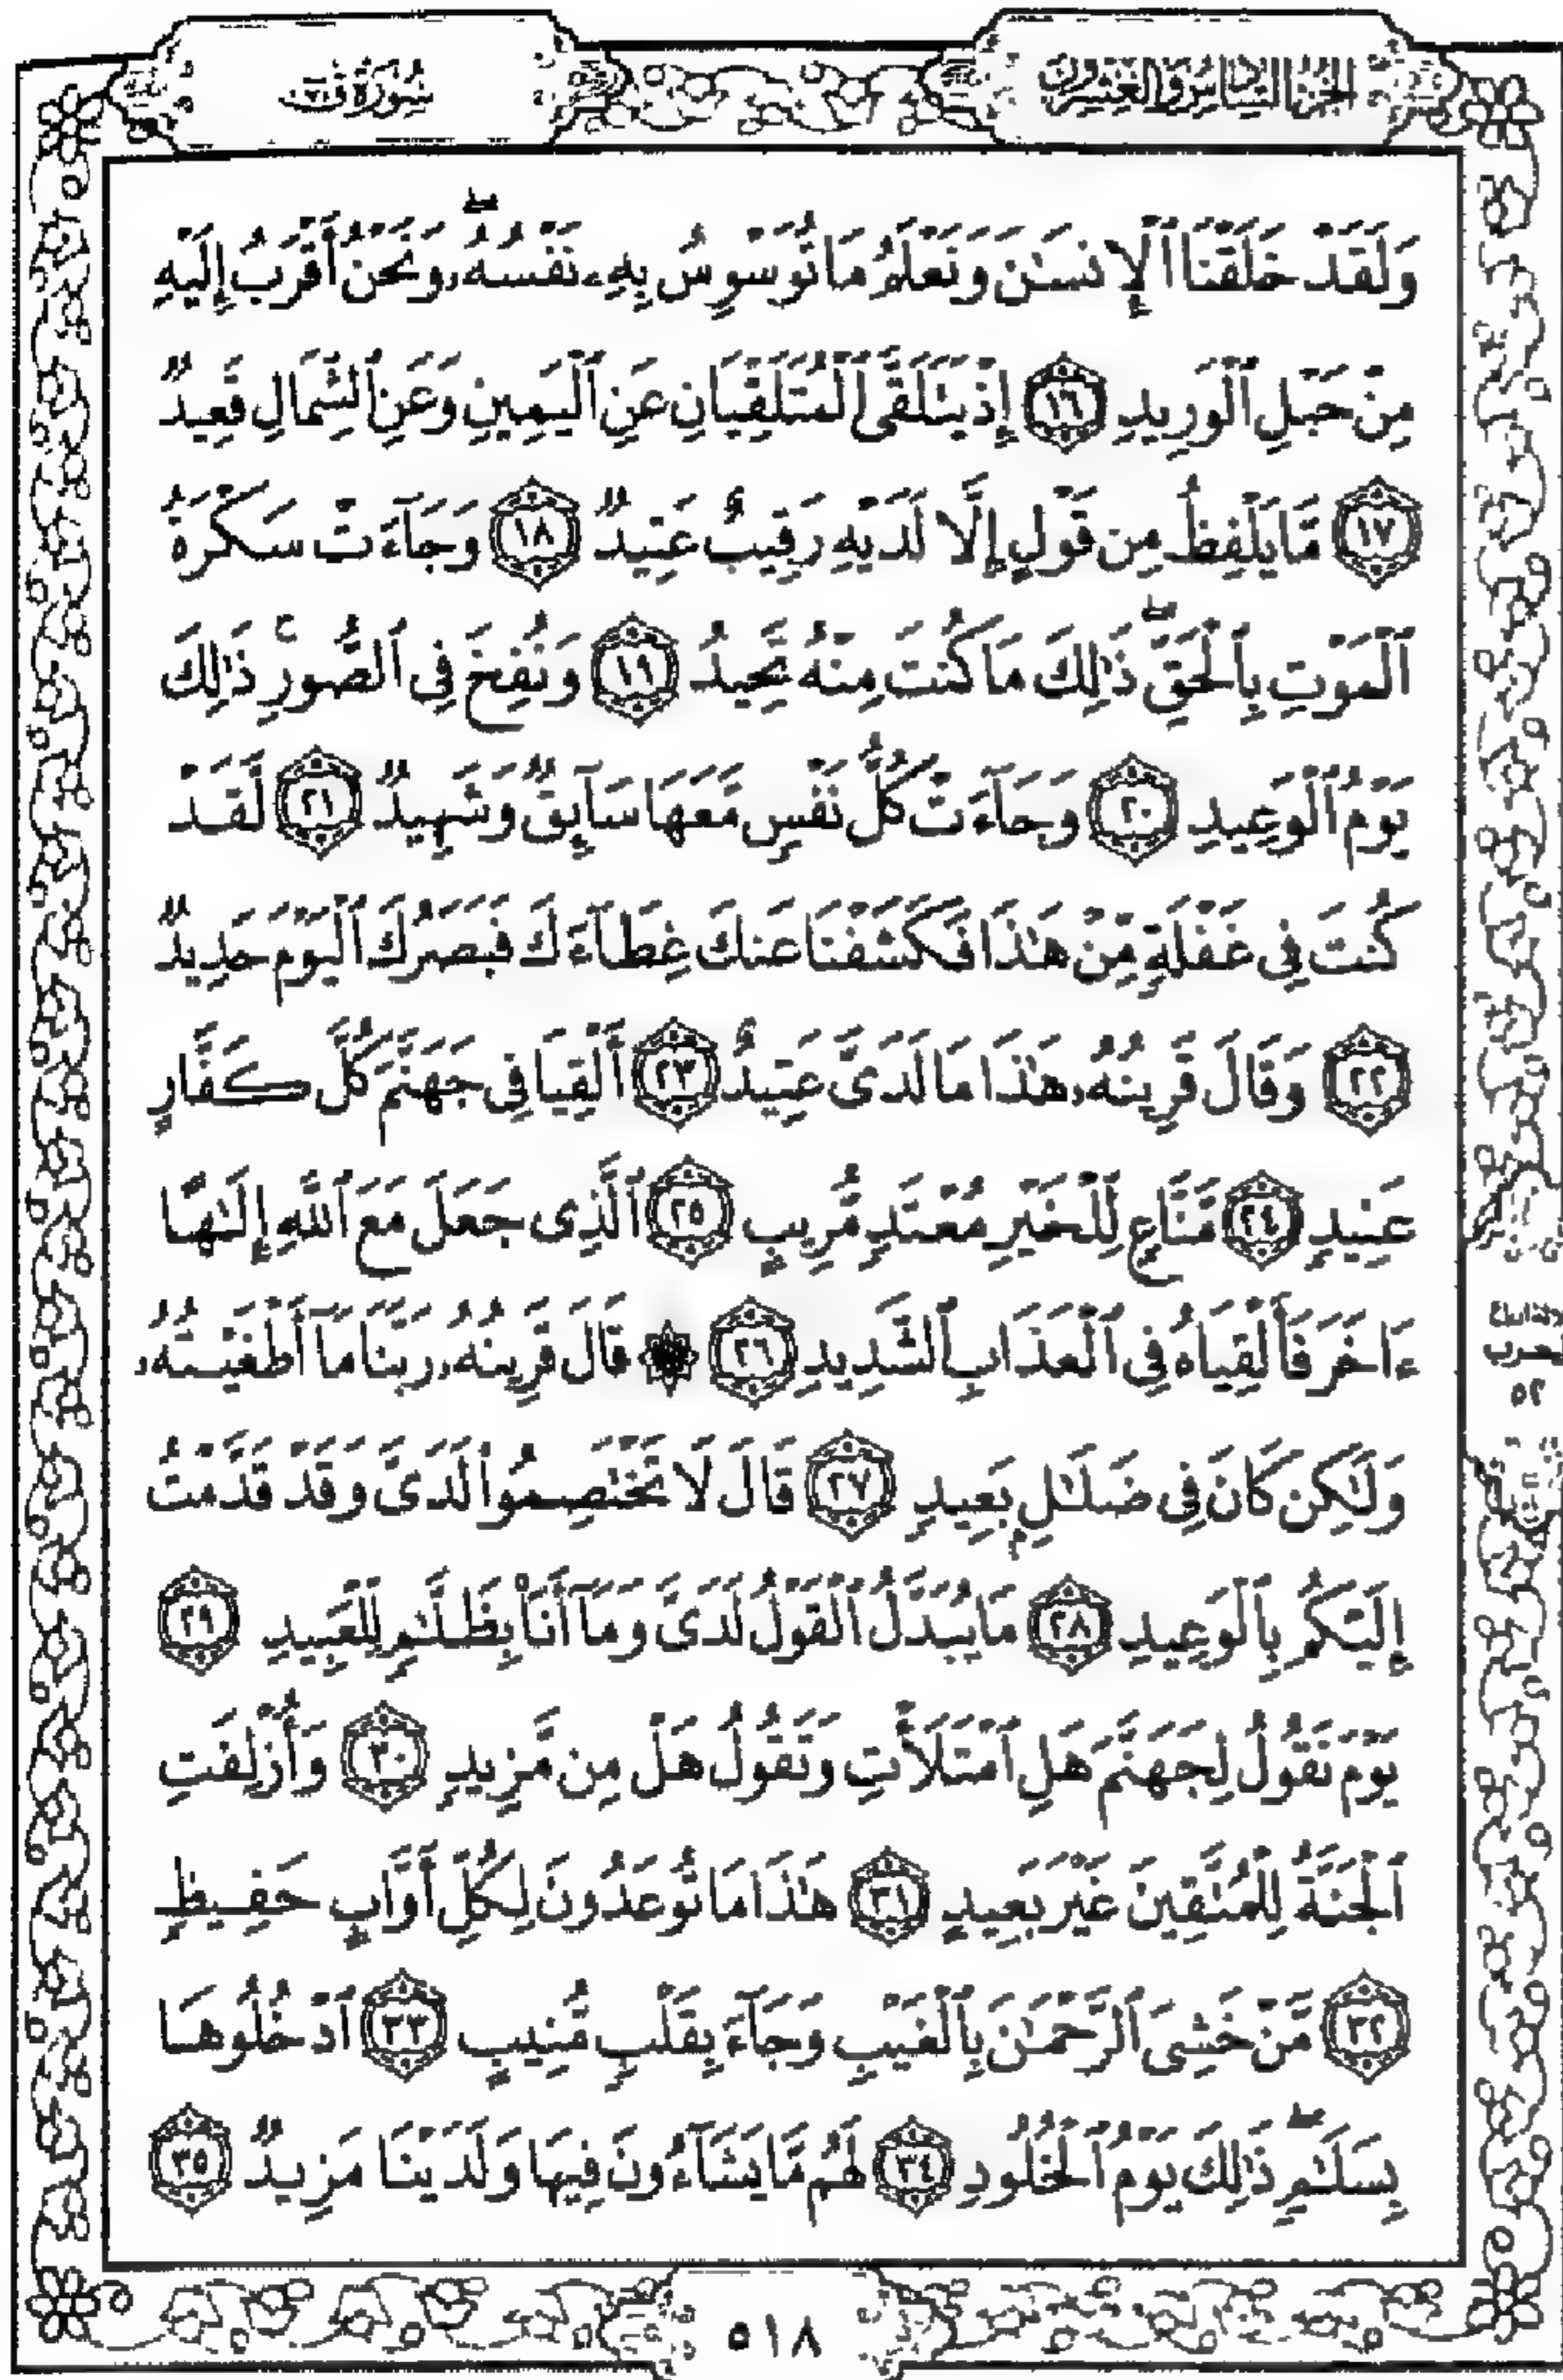 الجزء السادس والعشرون
سورة ق
وَلَقَدْ خَلَقْنَا ٱلْإِنسَـٰنَ وَنَعْلَمُ مَا تُوَسْوِسُ بِهِۦ نَفْسُهُۥ ۖ وَنَحْنُ أَقْرَبُ إِلَيْهِ
مِنْ حَبْلِ ٱلْوَرِيدِ ١٦ إِذْ يَتَلَقَّى ٱلْمُتَلَقِّيَانِ عَنِ ٱلْيَمِينِ وَعَنِ ٱلشِّمَالِ قَعِيدٌ
١٧ مَّا يَلْفِظُ مِن قَوْلٍ إِلَّا لَدَيْهِ رَقِيبٌ عَتِيدٌ ١٨ وَجَآءَتْ سَكْرَةُ
ٱلْمَوْتِ بِٱلْحَقِّ ۖ ذَٰلِكَ مَا كُنتَ مِنْهُ تَحِيدُ ١٩ وَنُفِخَ فِى ٱلصُّورِ ۚ ذَٰلِكَ
يَوْمُ ٱلْوَعِيدِ ٢٠ وَجَآءَتْ كُلُّ نَفْسٍ مَّعَهَا سَآئِقٌ وَشَهِيدٌ ٢١ لَّقَدْ
كُنتَ فِى غَفْلَةٍ مِّنْ هَـٰذَا فَكَشَفْنَا عَنكَ غِطَآءَكَ فَبَصَرُكَ ٱلْيَوْمَ حَدِيدٌ
٢٢ وَقَالَ قَرِينُهُۥ هَـٰذَا مَا لَدَىَّ عَتِيدٌ ٢٣ أَلْقِيَا فِى جَهَنَّمَ كُلَّ كَفَّارٍ
عَنِيدٍ ٢٤ مَّنَّاعٍ لِّلْخَيْرِ مُعْتَدٍ مُّرِيبٍ ٢٥ ٱلَّذِى جَعَلَ مَعَ ٱللَّهِ إِلَـٰهًا
ءَاخَرَ فَأَلْقِيَاهُ فِى ٱلْعَذَابِ ٱلشَّدِيدِ ٢٦ ۞ قَالَ قَرِينُهُۥ رَبَّنَا مَآ أَطْغَيْتُهُۥ
وَلَـٰكِن كَانَ فِى ضَلَـٰلٍۭ بَعِيدٍ ٢٧ قَالَ لَا تَخْتَصِمُوا۟ لَدَىَّ وَقَدْ قَدَّمْتُ
إِلَيْكُم بِٱلْوَعِيدِ ٢٨ مَا يُبَدَّلُ ٱلْقَوْلُ لَدَىَّ وَمَآ أَنَا۠ بِظَلَّـٰمٍ لِّلْعَبِيدِ ٢٩
يَوْمَ نَقُولُ لِجَهَنَّمَ هَلِ ٱمْتَلَأْتِ وَتَقُولُ هَلْ مِن مَّزِيدٍ ٣٠ وَأُزْلِفَتِ
ٱلْجَنَّةُ لِلْمُتَّقِينَ غَيْرَ بَعِيدٍ ٣١ هَـٰذَا مَا تُوعَدُونَ لِكُلِّ أَوَّابٍ حَفِيظٍ
٣٢ مَّنْ خَشِىَ ٱلرَّحْمَـٰنَ بِٱلْغَيْبِ وَجَآءَ بِقَلْبٍ مُّنِيبٍ ٣٣ ٱدْخُلُوهَا
بِسَلَـٰمٍ ۖ ذَٰلِكَ يَوْمُ ٱلْخُلُودِ ٣٤ لَهُم مَّا يَشَآءُونَ فِيهَا وَلَدَيْنَا مَزِيدٌ ٣٥
٥٢
٥١٨